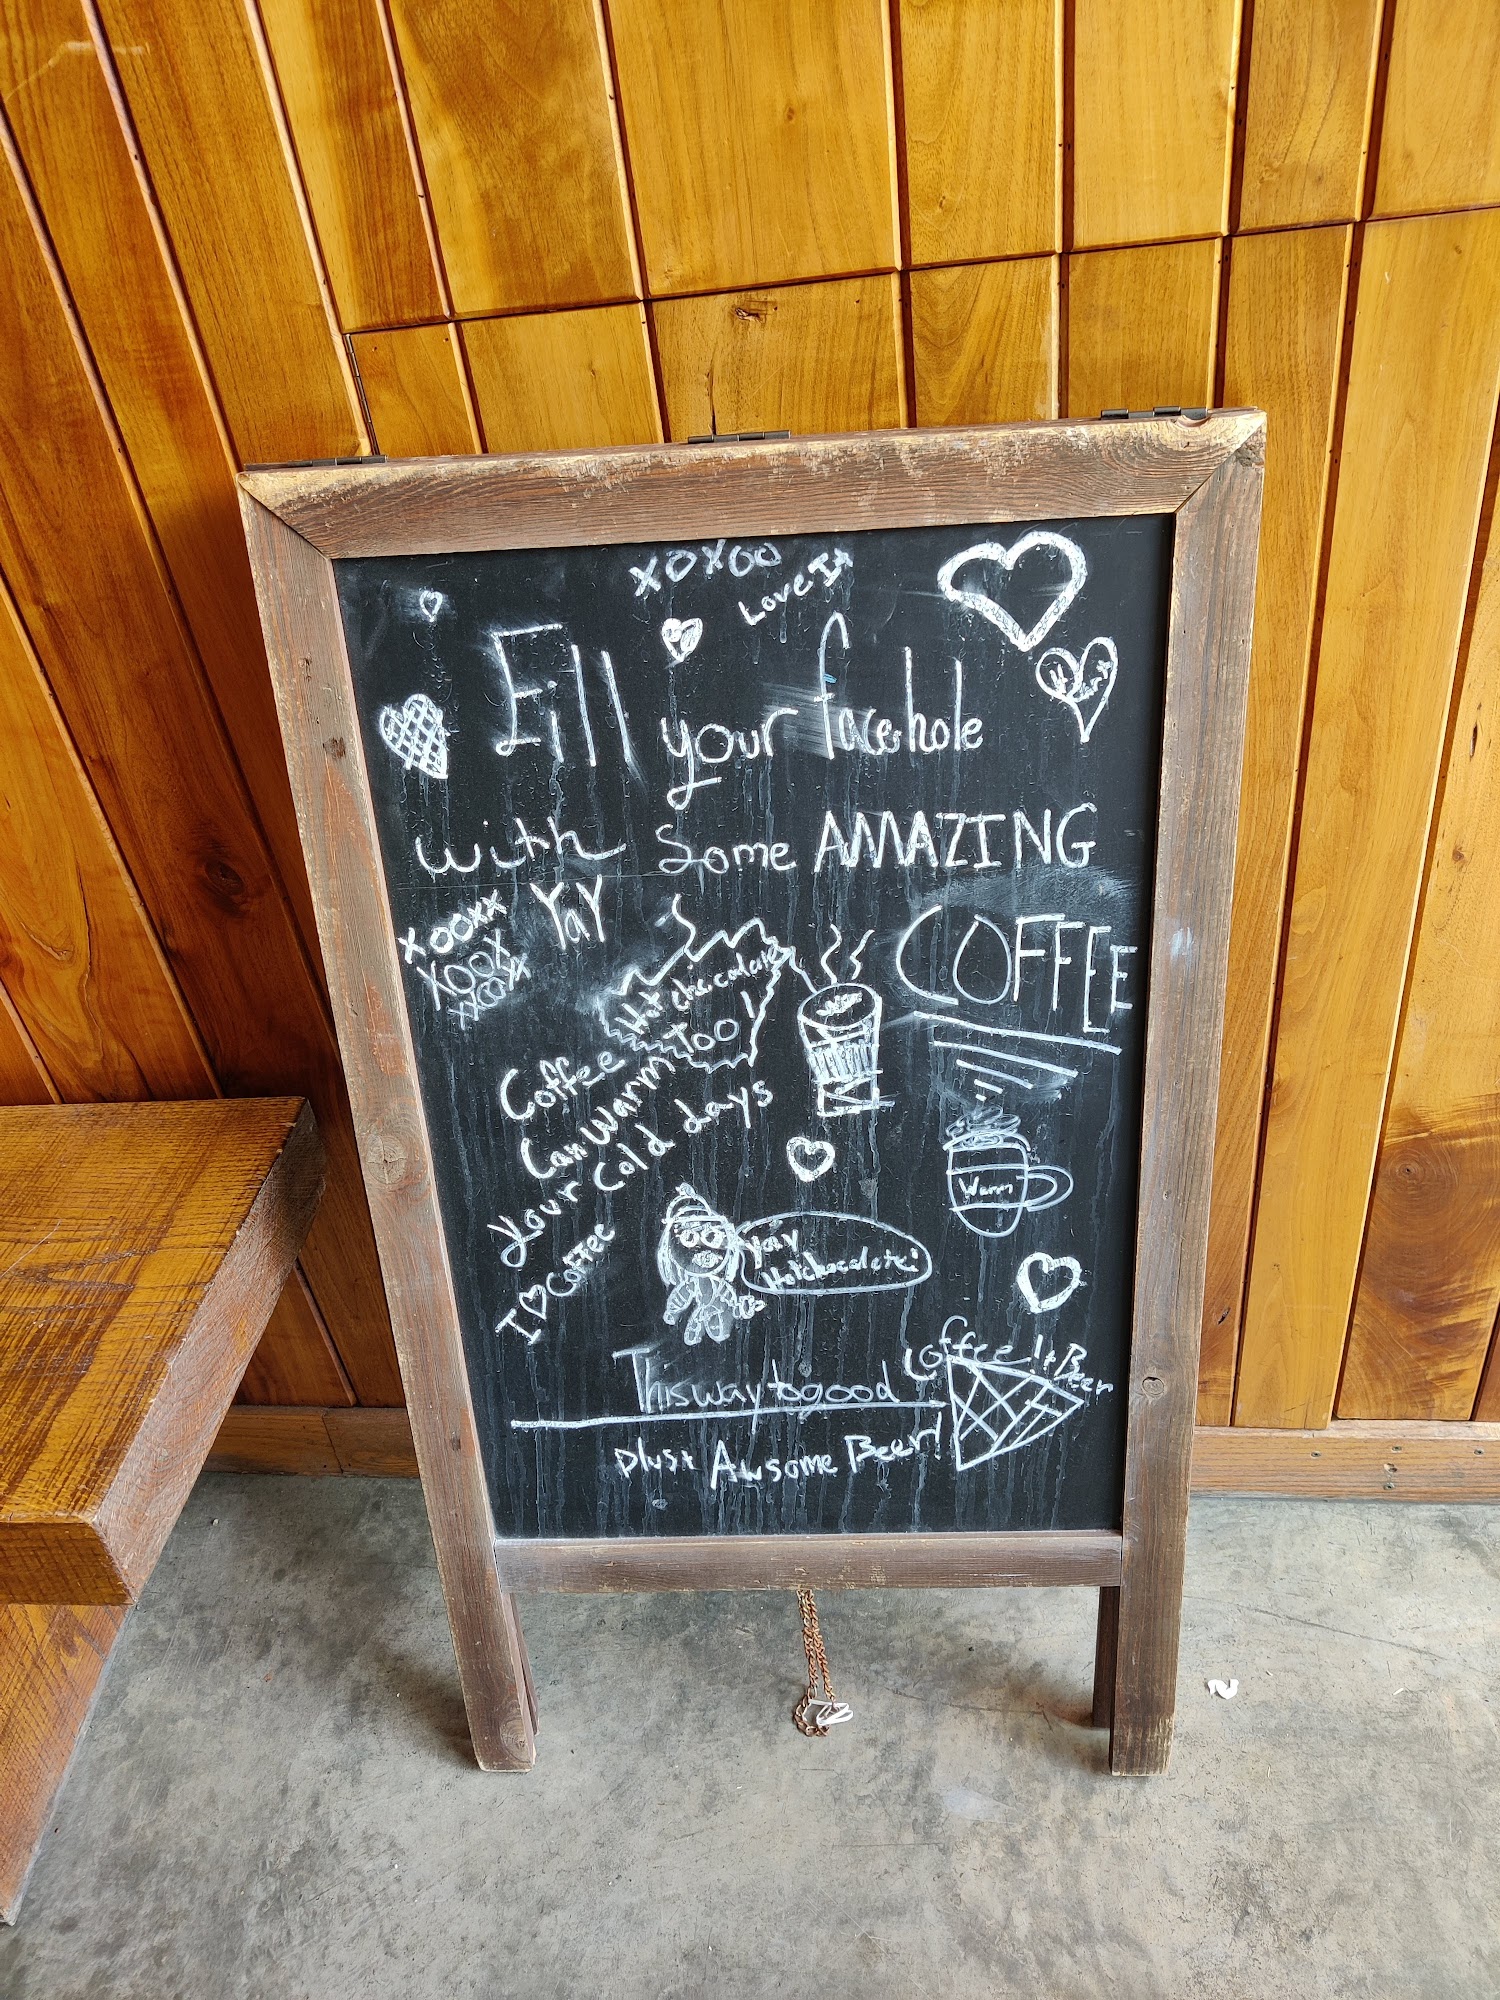 XOXOO
Love It
Fill your facehole
with Some AMAZING
COFFEE
XOOXX
XOOX
YaY
Hot chocolate
too!
Coffee
Can Warm
your cold days
Warm
I ♡ Coffee
yaiy
Hotchocolate!
Coffee! + Beer
This way to good
plus+ Awsome Beer!